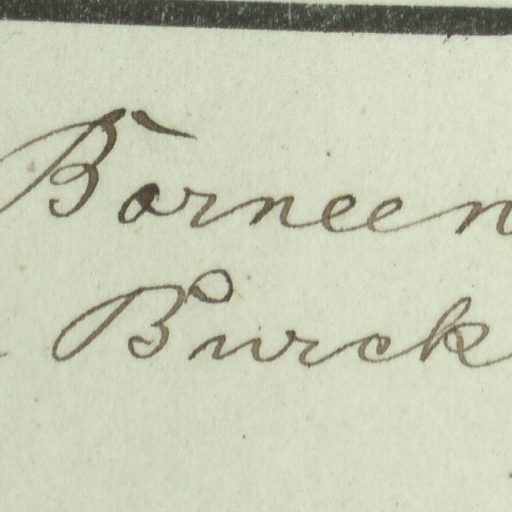 Borneen
Burck